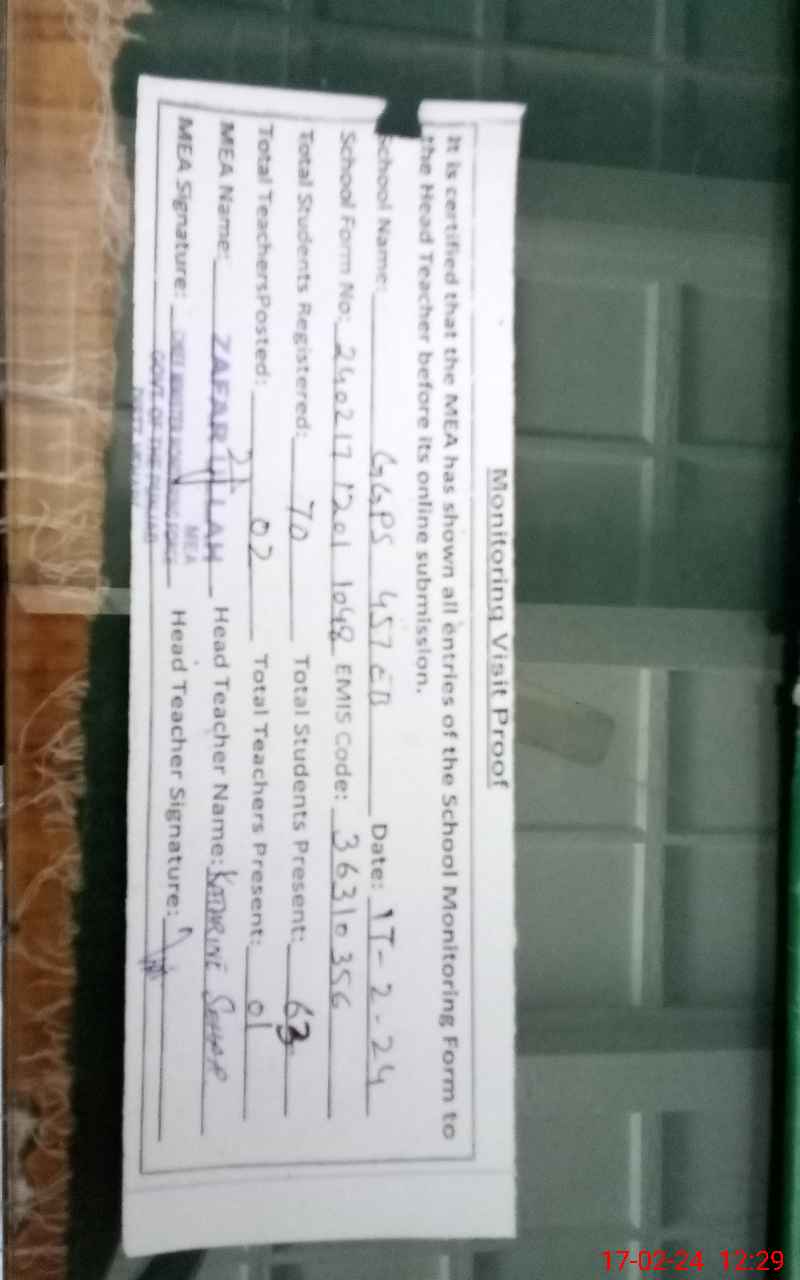 Monitoring Visit Proof
It is certified that the MEA has shown all entries of the School Monitoring Form to
the Head Teacher before its online submission.
School Name: GGPS 457 EB Date: 17-2-24
School Form No: 24021712011048 EMIS Code: 36310356
Total Students Registered: 70 Total Students Present: 63
Total TeachersPosted: 02 Total Teachers Present: 01
MEA Name: ZAFAR ULLAH Head Teacher Name: KATHRINE
MEA Signature: MEA Head Teacher Signature:
GOVT OF THE PUNJAB
17-02-24 12:29